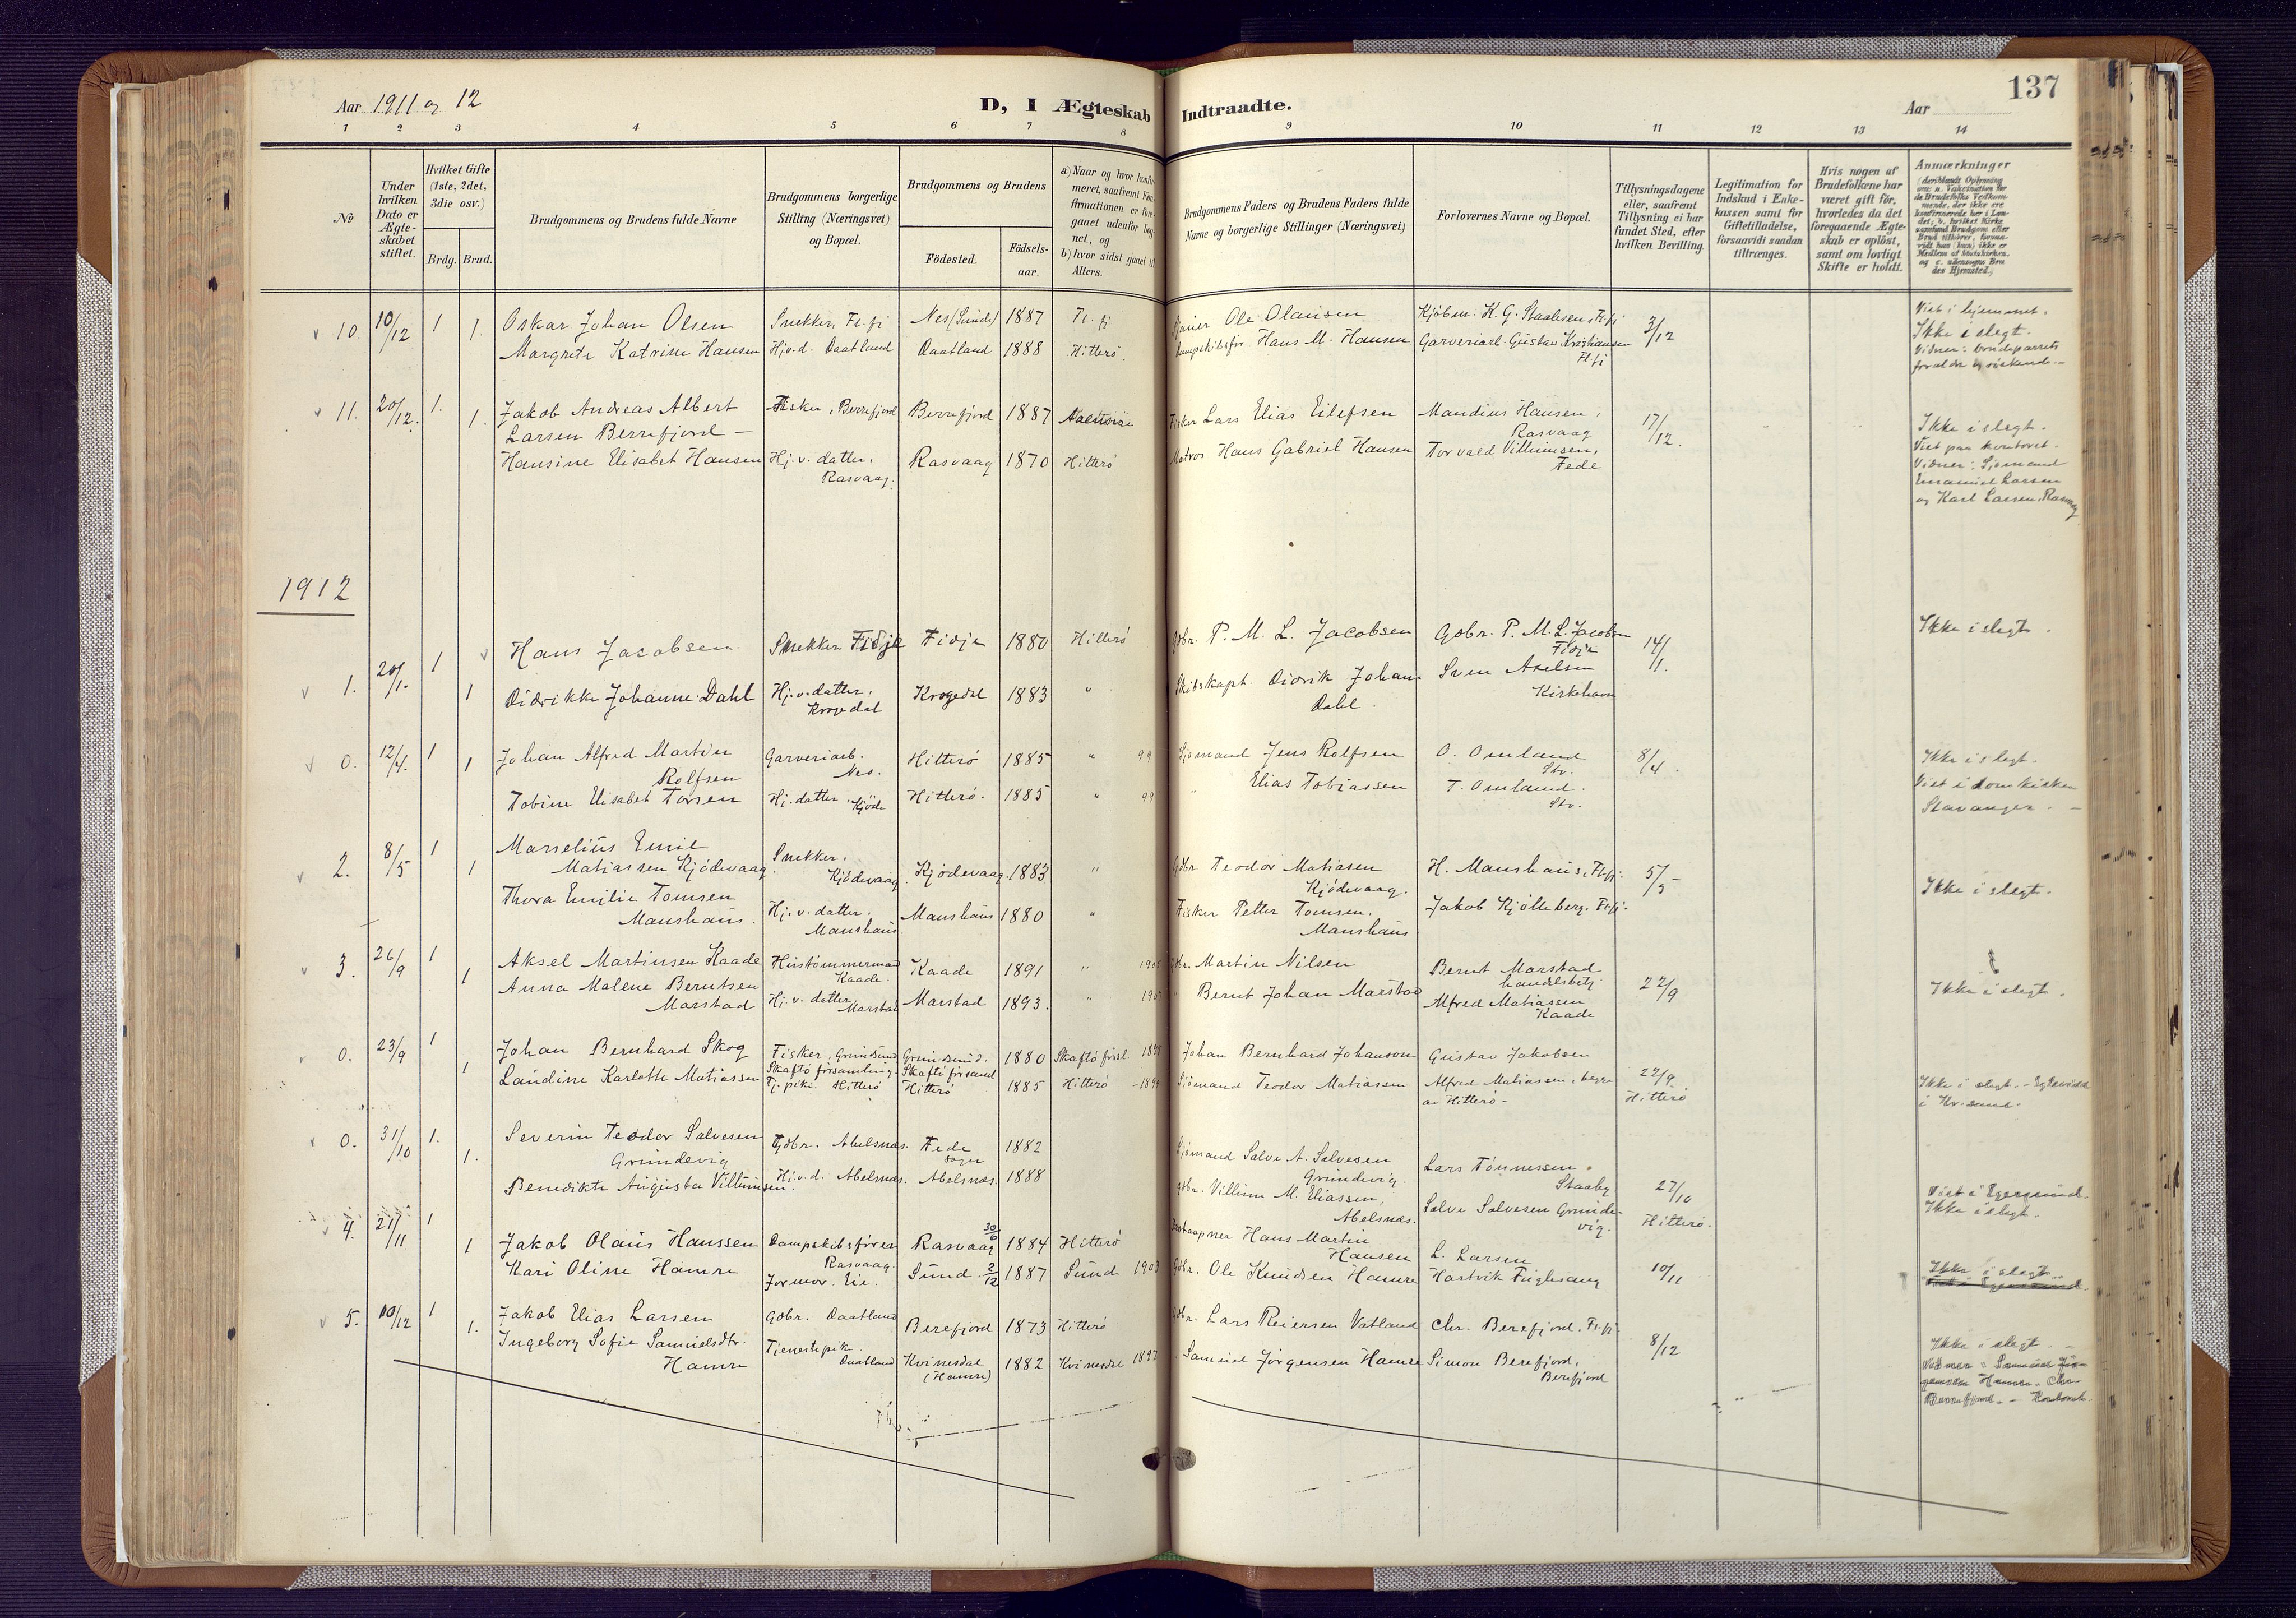 137
Aar 1911 og 12
D, I Ægteskab Indtraadte.
Aar
1 2 3 4 5 6 7 8 9 10 11 12 13 14
No
Under hvilken Dato er Ægte-skabet stiftet.
Hvilket Gifte (1ste, 2det, 3die osv.)
Brdg. Brud.
Brudgommens og Brudens fulde Navne
Brudgommens borgerlige Stilling (Næringsvei) og Bopæl.
Brudgommens og Brudens
Födested. Födsels-aar.
a) Naar og hvor konfir-meret, saafremt Kon-firmationen er fore-gaaet udenfor Sog-net, og
b) hvor sidst gaaet til Alters.
Brudgommens Faders og Brudens Faders fulde Navne og borgerlige Stillinger (Næringsvei)
Forlovernes Navne og Bopæl.
Tillysningsdagene eller, saafremt Tillysning ei har fundet Sted, efter hvilken Bevilling.
Legitimation for Indskud i Enke-kassen samt for Giftetilladelse, forsaavidt saadan tiltrænges.
Hvis nogen af Brudefolkene har været gift för, hvorledes da det foregaaende Ægte-skab er oplöst, samt om lovligt Skifte er holdt.
Anmærkninger
10. 10/12 1 1. Oskar Johan Olsen Snekker, Fl.fj Nes (Sunde) 1887 Fl. fj. Ole Olausen Kjöbm. K. G. Staalesen, Fl.fj 3/12 Viet i hjemmet.
Ikke i slegt.
Margrete Katrine Hansen Hjv.d. Daatland Daatland 1888 Hitterö. Dampskibsfør. Hans M. Hansen Garveriarb. Gustav Kristiansen Fl.fj
Vidner: brudeparrets
forældre og söskende.
11. 20/12. 1. 1. Jakob Andreas Albert Fisker, Berrefjord Berrefjord 1887 Fisker Lars Elias Eilefsen Mandius Hansen, Rasvaag 17/12. Ikke i slegt.
Larsen Berrefjord
Viet paa kontoret.
Hansine Elisabet Hansen Hj.v. datter, Rasvaag. Rasvaag 1870 Hitterö Matros Hans Gabriel Hansen Torvald Villumsen, Fede
Vidner: Sjømand
Emanuel Larsen
og Karl Larsen, Rasvaag
1912
1. 20/1. 1 1 Hans Jacobsen Snekker. Fidje Fidje 1880 Hitterö Gbr. P. M. L. Jacobsen Gbr. P. M. L. Jacobsen Fidje 14/1. Ikke i slegt.
Didrikke Johanne Dahl Hj.v. datter, Krogedal Krogedal 1883 " Skibskapt. Didrik Johan Dahl. Sven Axelsen Kirkehavn
0. 12/4. 1 1 Johan Alfred Martin Rolfsen Garveriarb. Nes. Hitterö 1885 " 99 Sjømand Jens Rolfsen O. Omland Stv. 8/4. Ikke i slegt.
Tobine Elisabet Torsen Hj. datter, Kjöde Hitterö. 1885 " 99 " Elias Tobiassen T. Omland. Stv. Viet i domkirken
Stavanger.
2. 8/5 1 1 Marselius Emil Matiassen Kjödevaag Snekker. Kjödevaag Kjödevaag. 1883 " Gbr. Teodor Matiasen Kjödevaag. H. Manshaus, Fl.fj. 5/5 Ikke i slegt.
Thora Emilie Tomsen Manshaus. Hj.v. datter. Manshaus. Manshaus 1880 " Fisker Petter Tomsen, Manshaus Jakob Kjölleberg. Fl.fj.
3. 26/9 1 1 Aksel Martinsen Kaade Hustömmermand Kaade. Kaade 1891 " 1905 Gbr. Martin Nilsen Bernt Marstad handelsbetj. 22/9 Ikke i slegt.
Anna Malene Berntsen Marstad Hj.v. datter, Marstad Marstad 1893. " Bernt Johan Marstad Alfred Matiassen Kaade
0. 23/9 1 1 Johan Bernhard Skog Fisker, Grundsund Skaftö forsamling. Grundsund. Skaftö forsaml. 1880 Skaftö forsl. Johan Bernhard Johanson Gustav Jakobsen 22/9 Hitterö
Landine Karlotte Matiassen Tj.pike. Hitterö Hitterö 1885 Hitterö Sjömand Teodor Matiasen Alfred Matiassen, begge av Hitterö Ikke i slegt. - Egtevidd
i Kr. sand.
0. 31/10 1. 1. Severin Teodor Salvesen Grundevig Gbr. Abelsnæs. Fede sogn 1882 Sjømand Salve A. Salvesen Grundevig. Lars Tönnessen Staaby 27/10 Hitterö.
Benedikte Augusta Villumsen. Hj.v.d. Abelsnæs. Abelsnæs. 1888 Gbr. Villum M. Eliassen, Abelsnæs. Salve Salvesen Grunde-vig. Viet i Egersund.
Ikke i slegt.
4. 21/11 1 1 Jakob Olaus Hanssen Dampskibsförer Rasvaag. Rasvaag 30/6 1884 Hitterö Hans Martin Hansen L. Larsen 10/11 Ikke i slegt.
Kari Oline Hamre Jormor. Eie. Sund 2/12 1887 Sund 1903 Gbr. Ole Knudsen Hamre Hartvik Fuglevaag
5. 10/12 1 1. Jakob Elias Larsen Gbr. Daatland Berefjord 1873 Hitterö Gbr. Lars Reiersen Vatland Chr. Berefjord, Fl.fj. 8/12
Ingeborg Sofie Samuelsdtr. Hamre Tjenestepike. Daatland Kvinesdal (Hamre) 1882 Kvinesdal 1897 Samuel Jørgensen Hamre Simon Berefjord, Berefjord Ikke i slegt.
Vidner: Samuel Jör-
gensen Hamre. Chr.
Berrefjord.